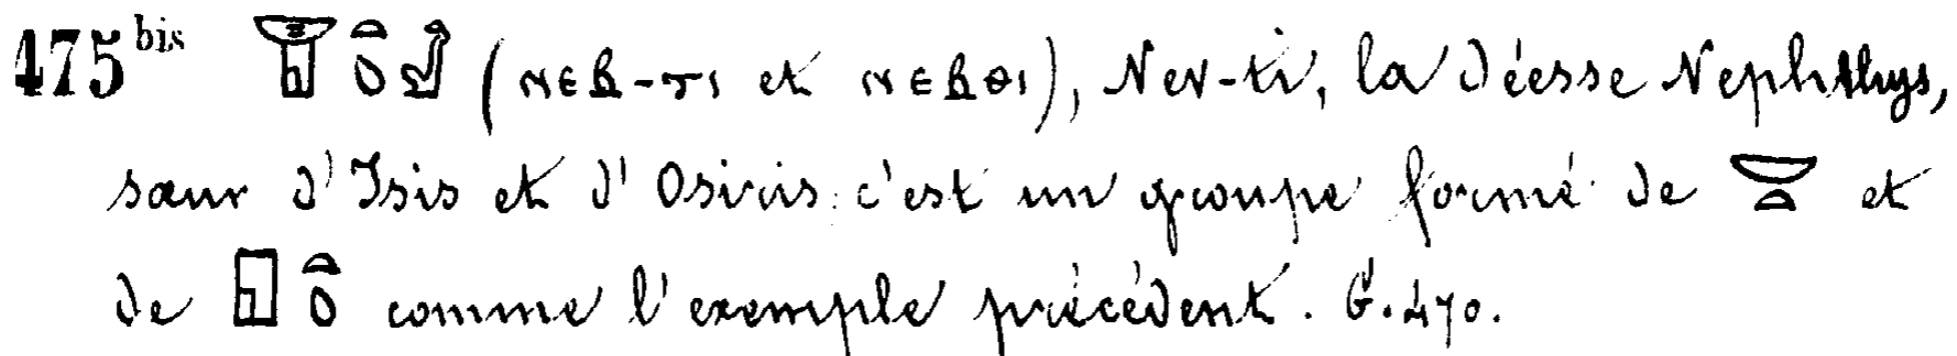 475 bis 𓉠𓏏𓆇 (ⲛⲉⲃ-ⲧⲓ et ⲛⲉⲃⲑⲓ), Nev-ti, la Déesse Nephthys,
sœur d'Isis et d'Osiris: c'est un groupe formé de 𓎟𓏏 et
de 𓉗𓏏𓆇 comme l'exemple précédent. G. 470.